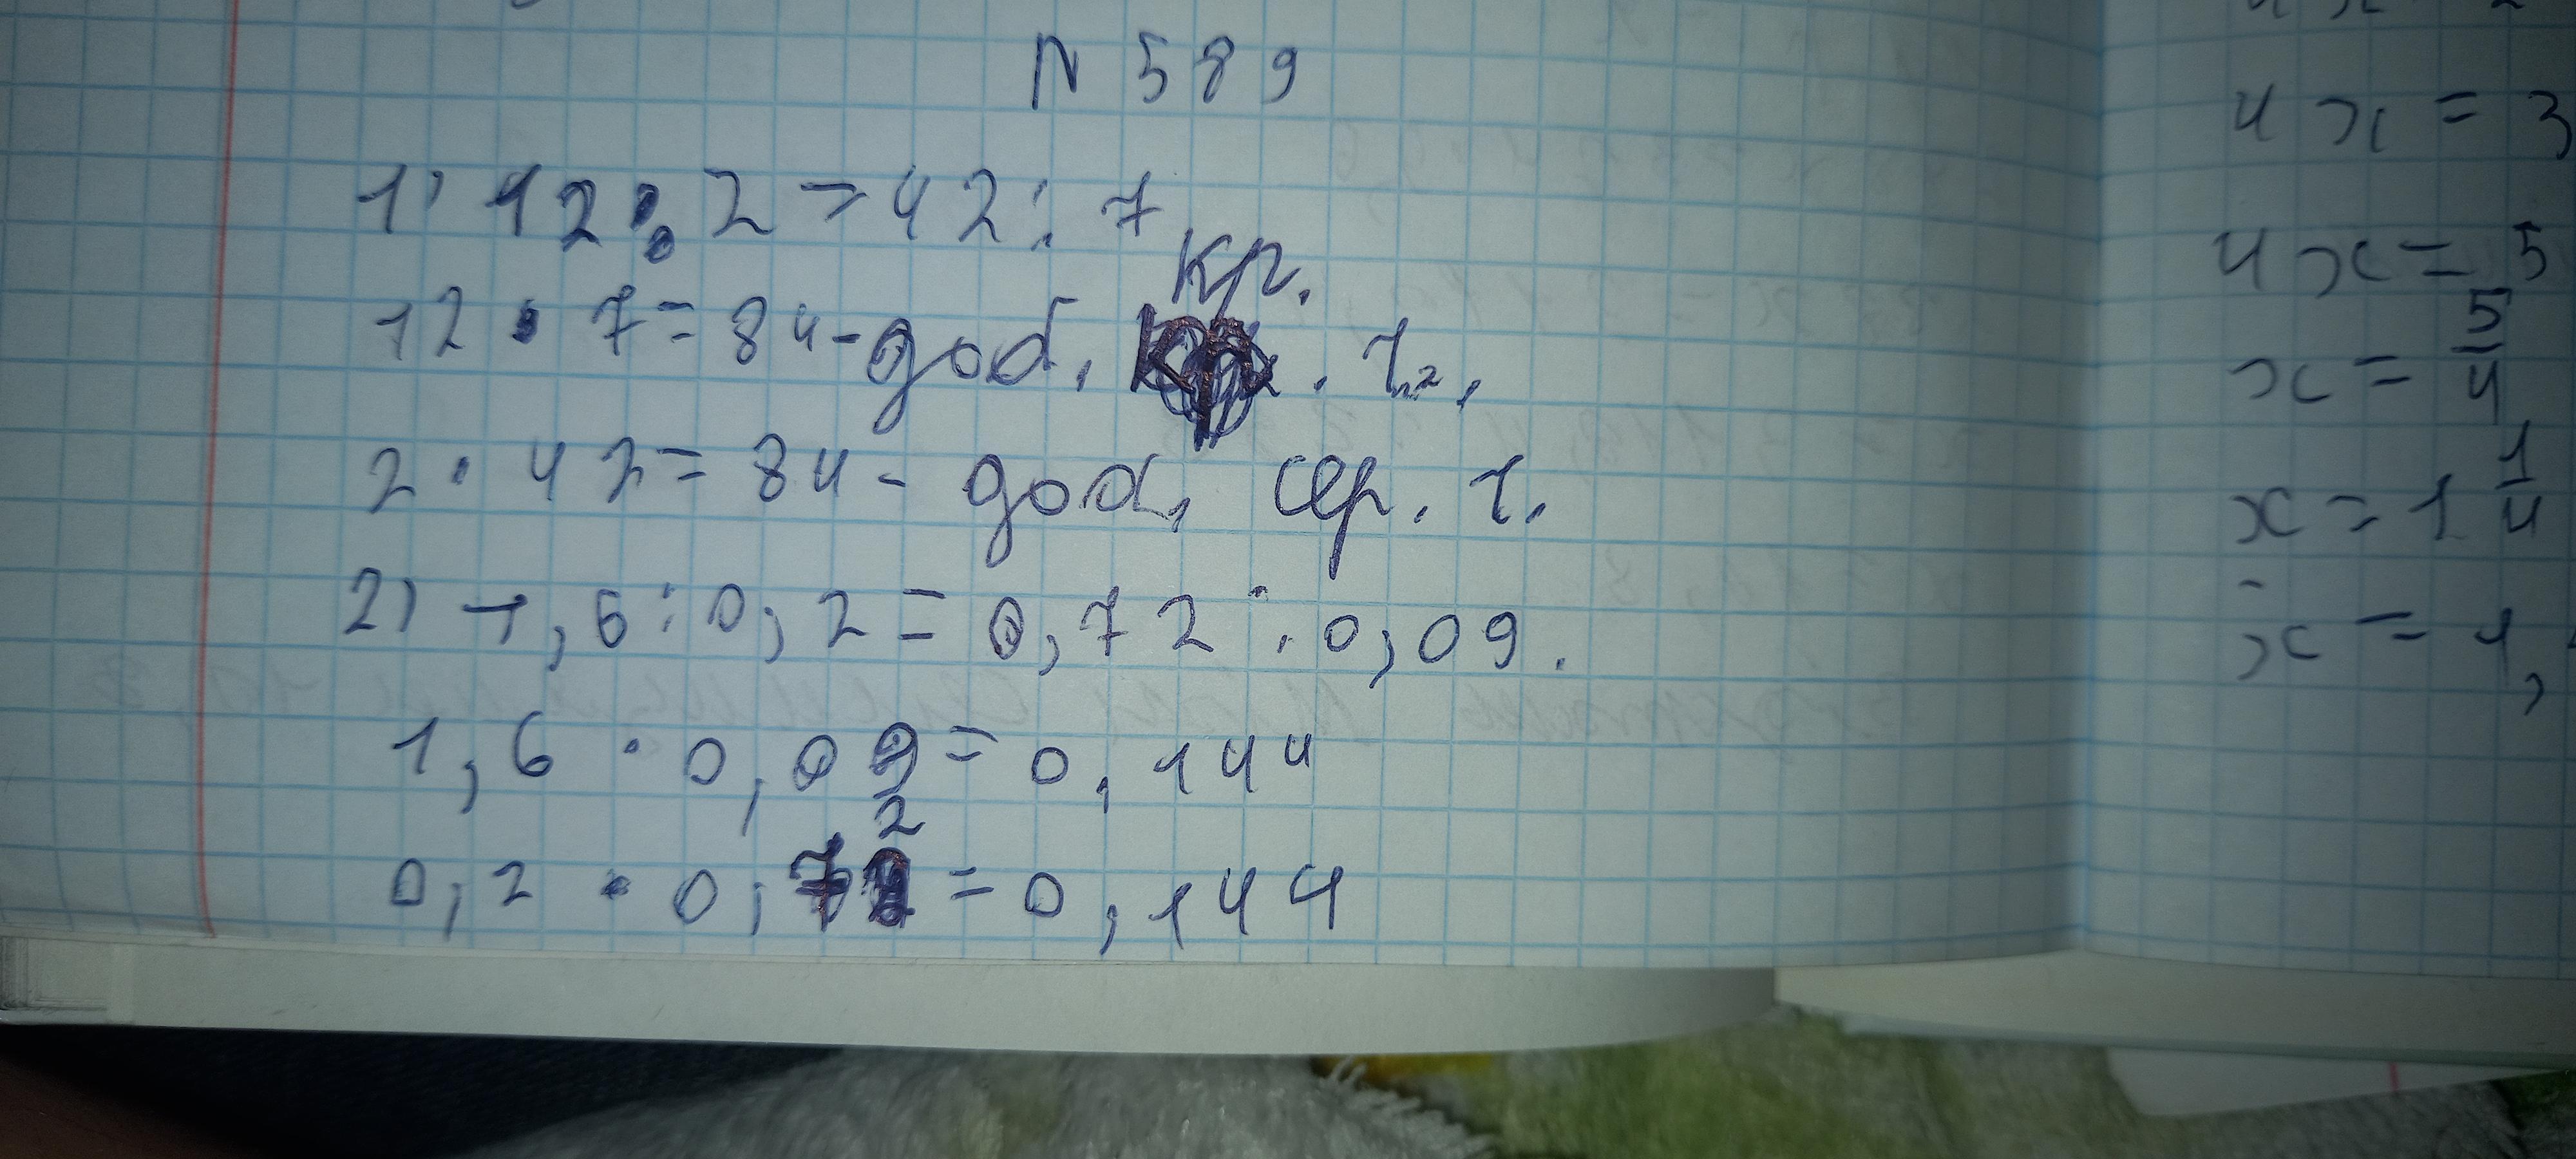 N 589
1) 12 : 2 = 42 : 7
12 · 7 = 84 - доб. кр. ч.
2 · 42 = 84 - доб. сер. ч.
2) 1,6 : 0,2 = 0,72 : 0,09.
1,6 · 0,09 = 0,144
0,2 · 0,72 = 0,144
4x = 3
4x = 5
x = 5/4
x = 1 1/4
x = 1,